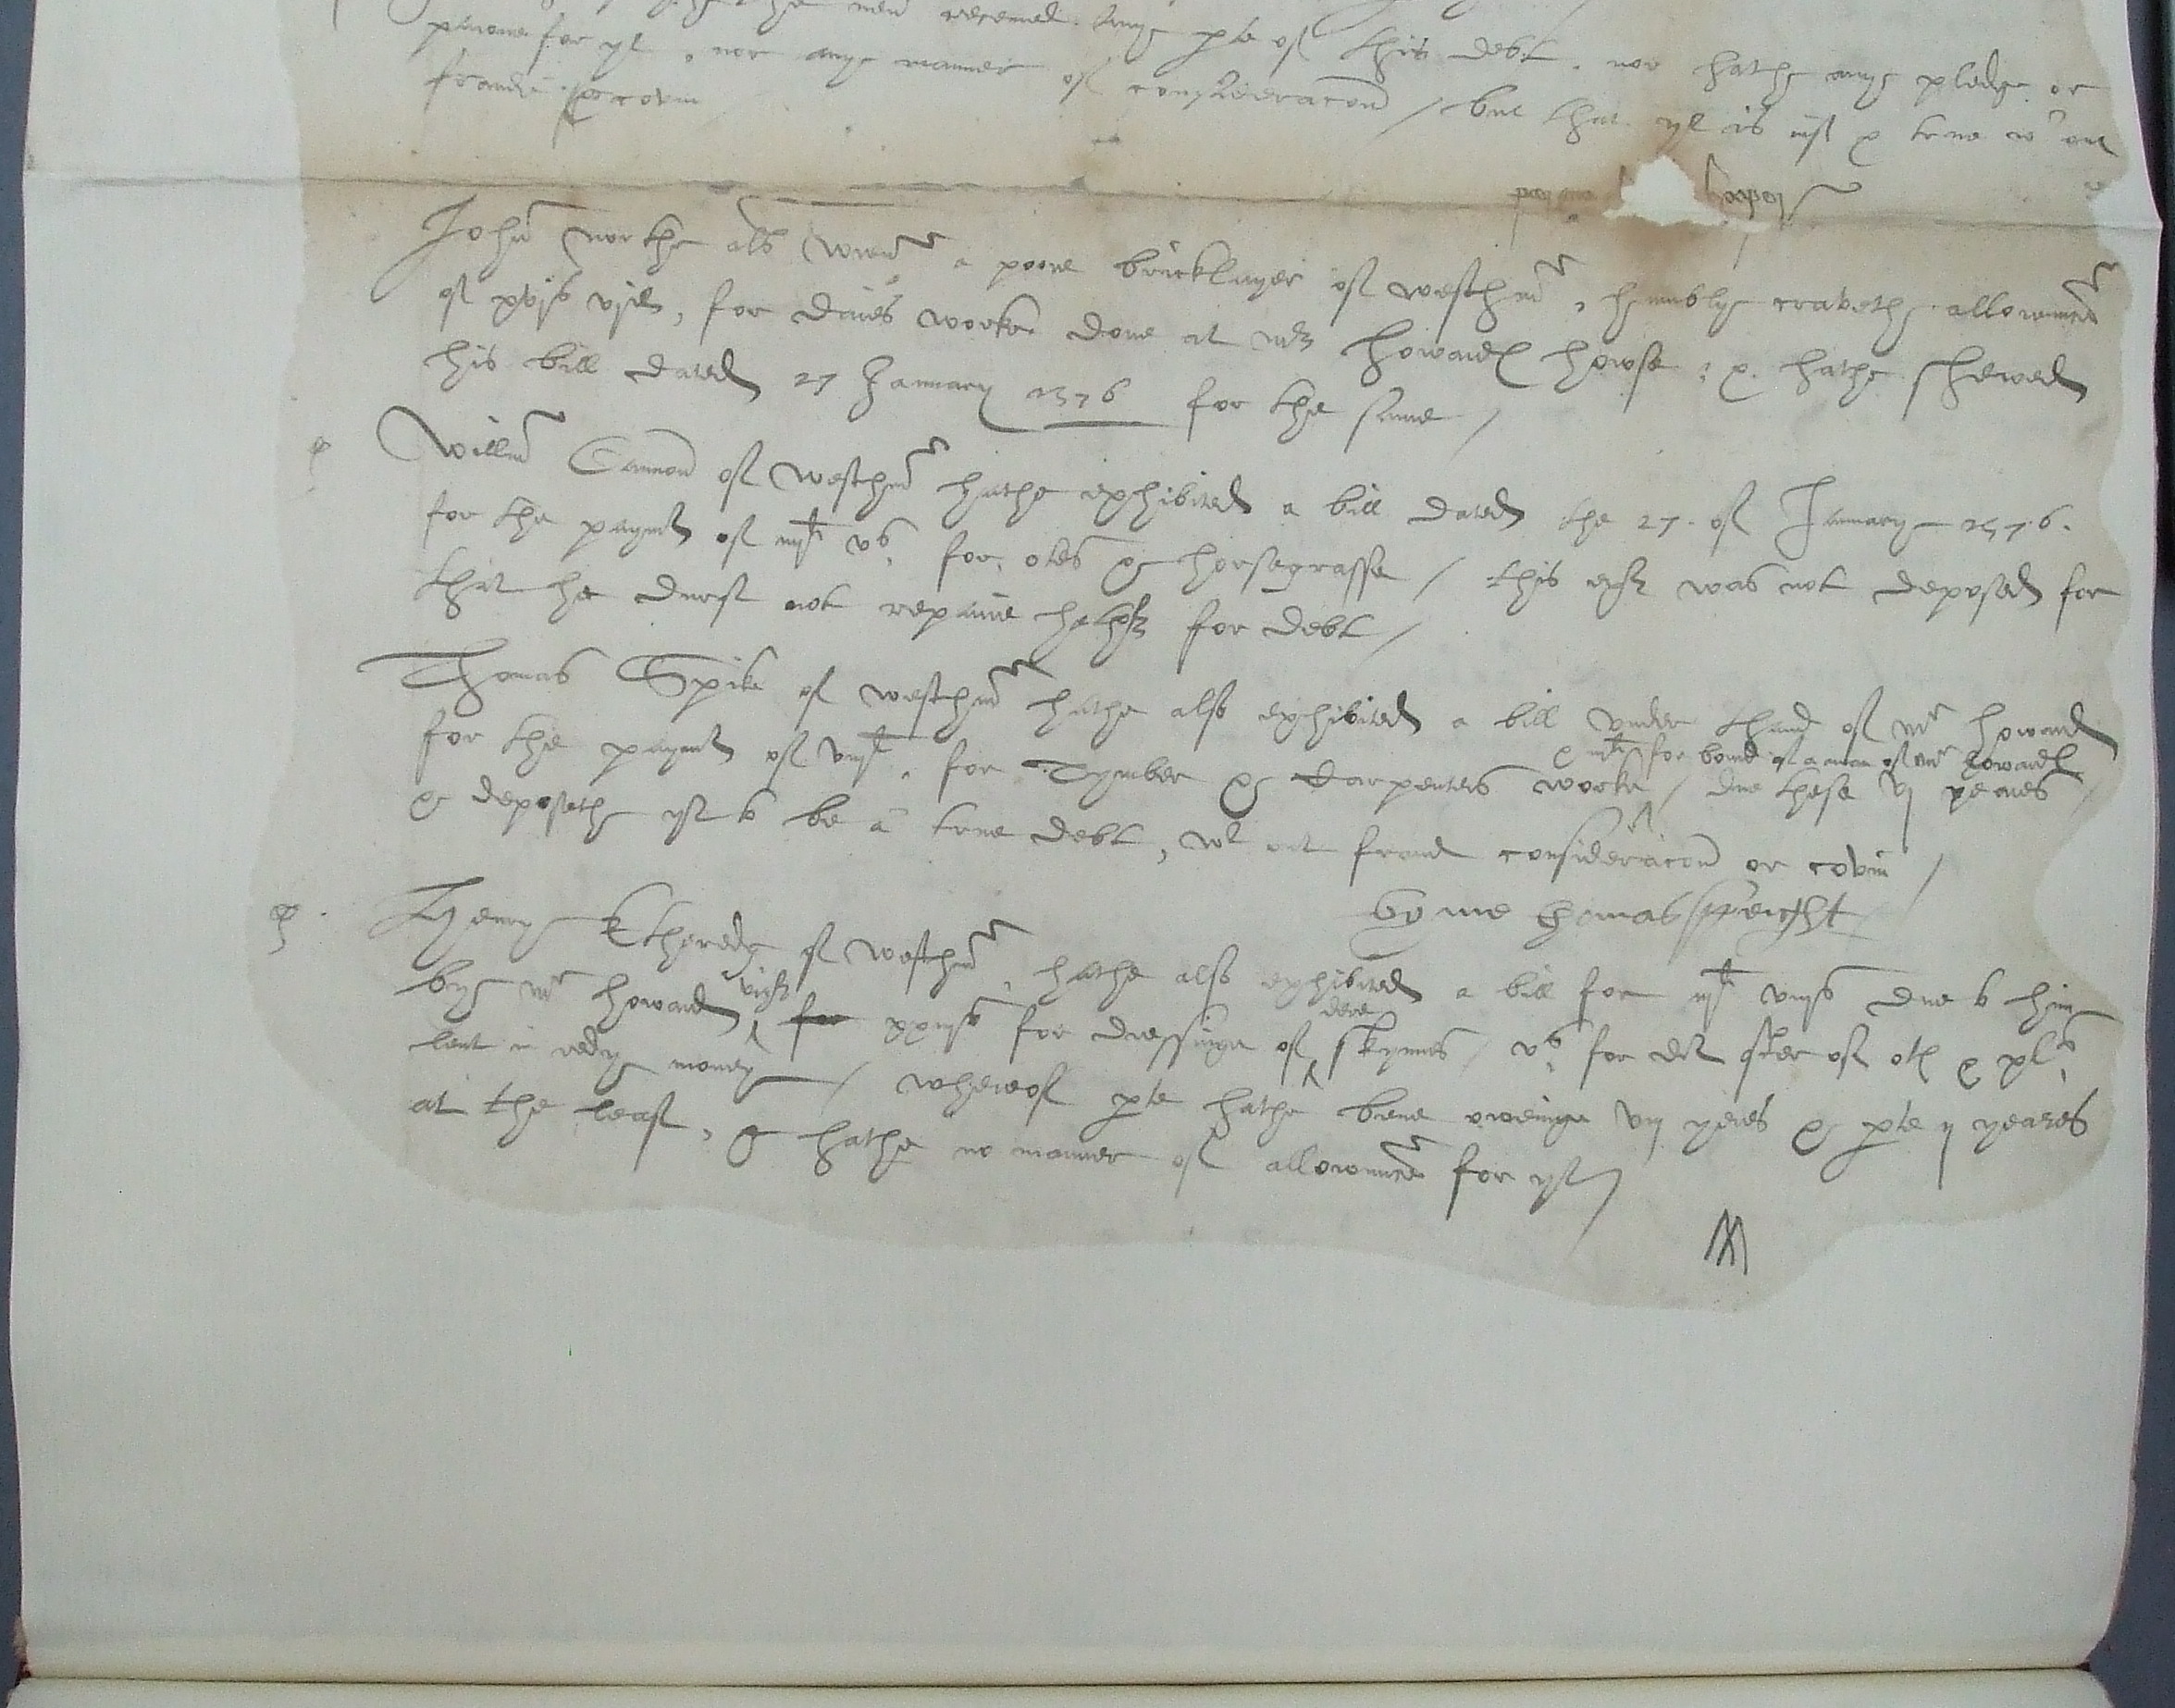 receaved any p̱te of this debt, nor hathe anye pledge or
for yt, nor anye manner of consideracon / but that yt is iust & true wt out
fraude or covin
John northe als a poore bricklayer of westhm̄, humbly craveth allowance
of xvijs vjd, for daies worke done at mr howards howse, & hathe shewed
his bill dated 27 January 1576 for the same /
Willm̄ Cannon of Westhm̄ hathe exhibited a bill dated the 27. of January 1576.
for the paymt of iijli vs. for otes & horsegrasse / this was not deposed for
that he durst not repaire hether for debt /
Thomas Spike of westhm̄ hathe also exhibited a bill under thand of mr howard
& for bord of a man of mr howards
for the paymt of viijli, for Tymber & Carpenters worke / due these vj yeares /
& deposeth yt to be a true debt, wt out fraud consideracon or covin /
by me thomas speight
Henry Etheredg of westhm̄, hathe also exhibited a bill for iijli viijs due to him
by mr howard vizt for xxiijs for dressinge of dere skynnes / vs. for
lent in redy money / whereof p̱te hathe bene oweinge vij yeres & p̱te ij yeares
at the least, & hathe no manner of allowance for yt /